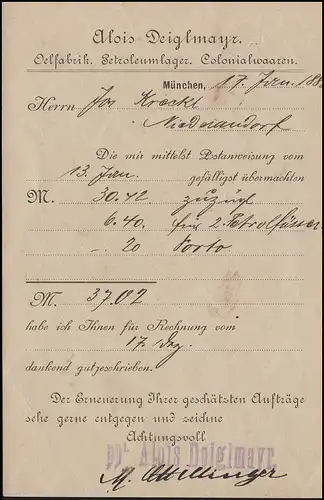 Alois Deiglmayr.
Oelfabrik. Petroleumlager. Colonialwaaren.
München, 17. Jan. 188
Herrn Jos
Niederaudorf
Die mir mittelst Postanweisung vom
13. Jan. gefälligst übermachten
M. 30.42 zuzügl
6.40. für 2 Petrolfässer
-. 20 Porto
M. 37.02
habe ich Ihnen für Rechnung vom
17. Dez.
dankend gutgeschrieben.
Der Erneuerung Ihrer geschätzten Aufträge
sehe gerne entgegen und zeichne
Achtungsvoll
ppa Alois Deiglmayr.